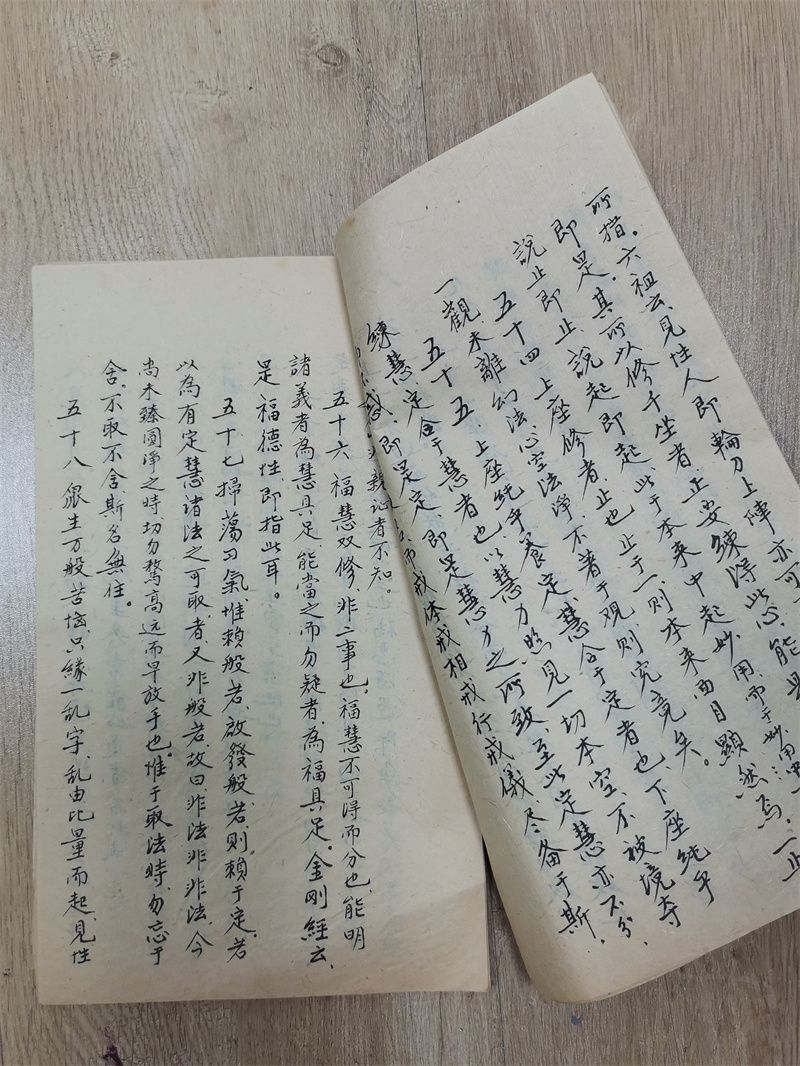 所指。六祖云、見性人即輪刀上陣亦可
即是。其所以修于坐者、正要練得此心能具
說止即止、說起即起、此于本來中起妙用、而于妙用中一止
五十四 上座修者、止也、止于一、則本來面目顯然焉。
一觀未離幻法、心空法淨、不著于观、則究竟矣。
五十五、上座純乎養定、慧合于定者也、下座純乎
練慧、定合于慧者也、以慧力照見一切本空、不被境夺
即是定、即是慧力之所致、至此定慧亦不分、
而戒体戒相戒行戒儀、尽备于斯、
非親証者不知。
五十六 福慧双修、非二事也。福慧不可得而分也、能明
諸義者為慧具足、能當之而勿疑者、為福具足。金剛經云、
是福德性、即指此耳。
五十七掃蕩习氣、惟賴般若、啟發般若、則賴于定、若
以為有定慧諸法之可取者、又非般若、故曰、非法非非法、今
尚未臻圓净之時、切勿騖高远而早放手也。惟于取法時、勿忘于
舍、不取不舍、斯名無住。
五十八眾生万般苦恼、只緣一乱字、乱由比量而起、見性